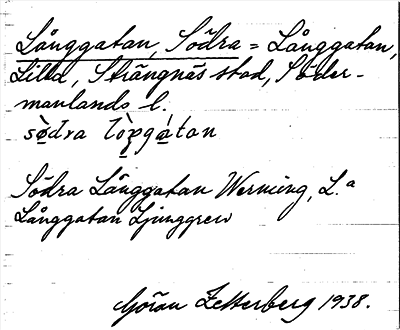 Långgatan, Södra = Långgatan,
Lilla, Strängnäs stad, Söder-
manlands l.
sø̀dra lòŋgátan
Södra Långgatan Werming, L.a
Långgatan Ljunggren
Göran Zetterberg 1938.